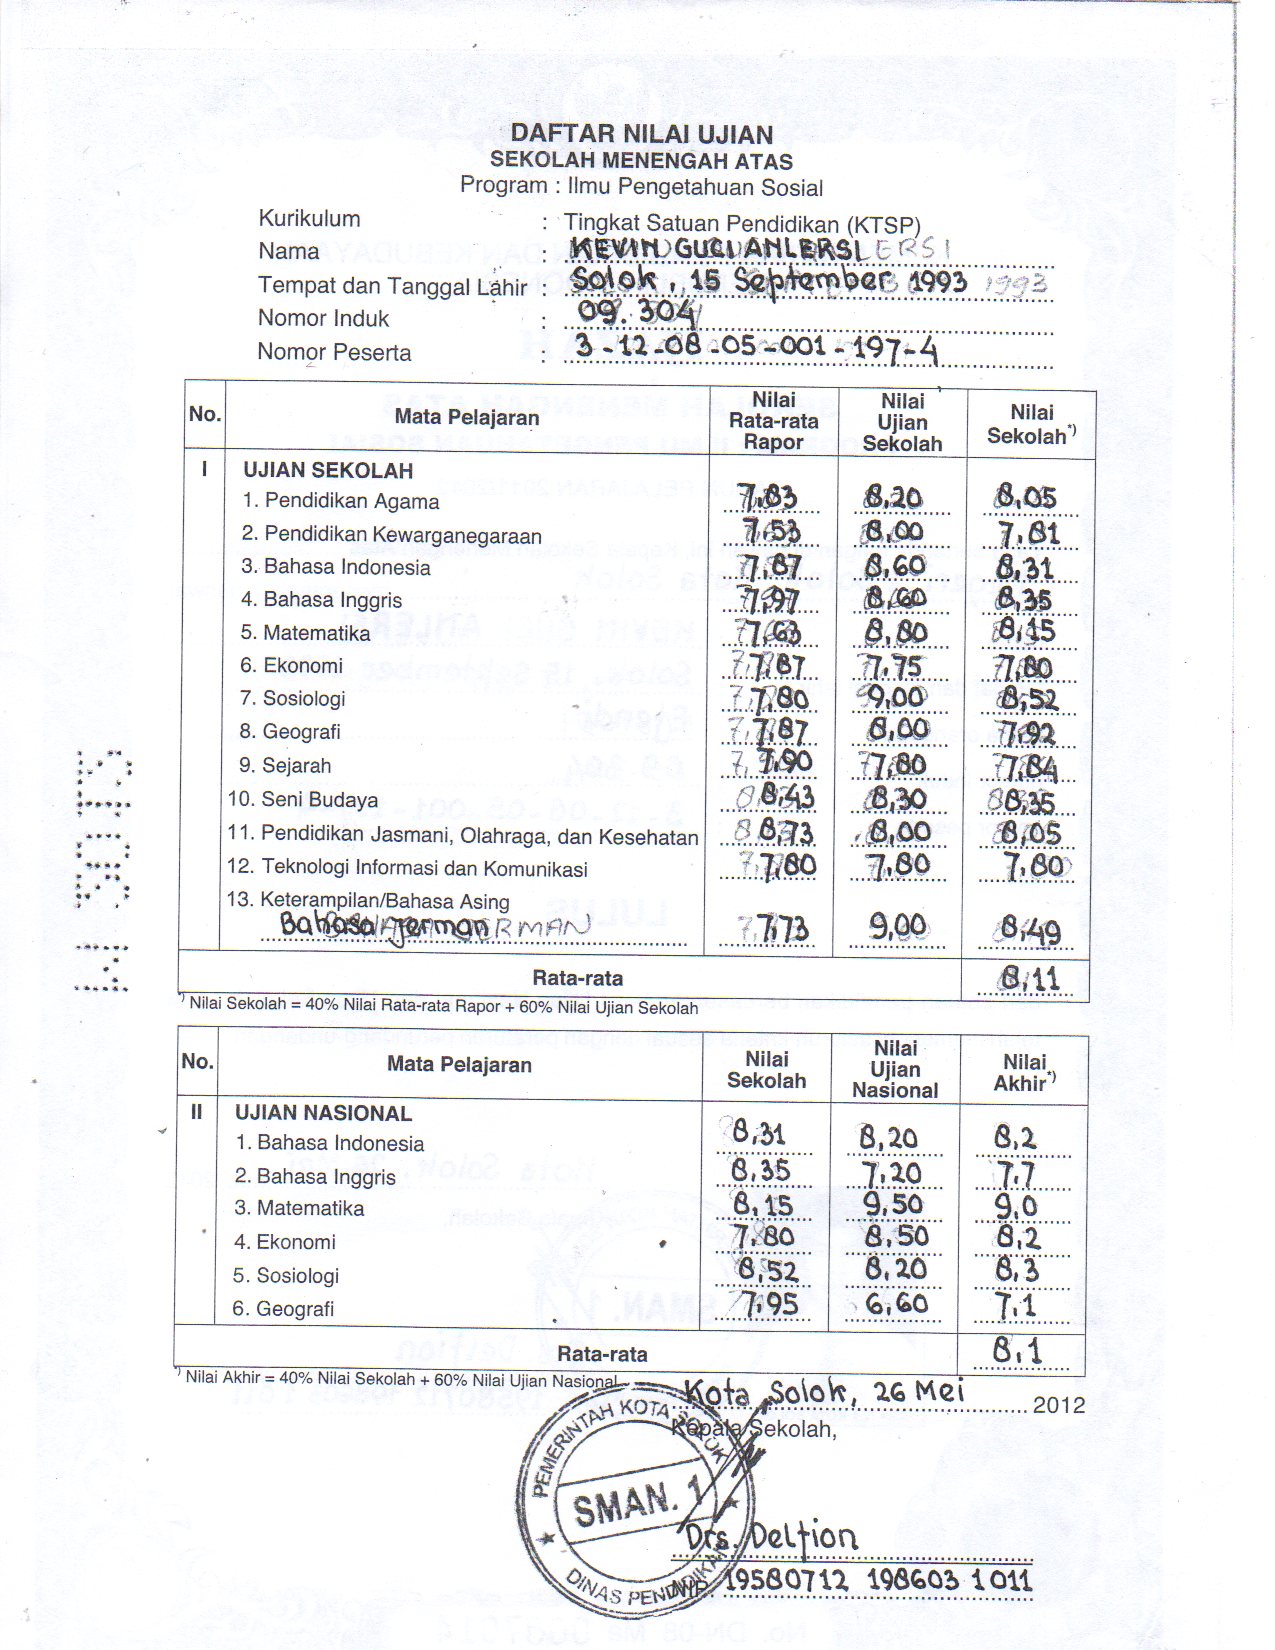 DAFTAR NILAI UJIAN
SEKOLAH MENENGAH ATAS
Program : Ilmu Pengetahuan Sosial
Kurikulum : Tingkat Satuan Pendidikan (KTSP)
Nama : KEVIN GUCI ANLERSI
Tempat dan Tanggal Lahir : Solok, 15 September 1993
Nomor Induk : 09.304
Nomor Peserta : 3-12-08-05-001-197-4
No. Mata Pelajaran Nilai Rata-rata Rapor Nilai Ujian Sekolah Nilai Sekolah*)
I UJIAN SEKOLAH
1. Pendidikan Agama 7,83 8,20 8,05
2. Pendidikan Kewarganegaraan 7,53 8,00 7,81
3. Bahasa Indonesia 7,87 8,60 8,31
4. Bahasa Inggris 7,97 8,60 8,35
5. Matematika 7,63 8,80 8,15
6. Ekonomi 7,87 7,75 7,80
7. Sosiologi 7,80 9,00 8,52
8. Geografi 7,87 8,00 7,92
9. Sejarah 7,90 7,80 7,84
10. Seni Budaya 8,43 8,30 8,35
11. Pendidikan Jasmani, Olahraga, dan Kesehatan 8,73 8,00 8,05
12. Teknologi Informasi dan Komunikasi 7,80 7,80 7,80
13. Keterampilan/Bahasa Asing
Bahasa Jerman 7,73 9,00 8,49
Rata-rata 8,11
*) Nilai Sekolah = 40% Nilai Rata-rata Rapor + 60% Nilai Ujian Sekolah
No. Mata Pelajaran Nilai Sekolah Nilai Ujian Nasional Nilai Akhir*)
II UJIAN NASIONAL
1. Bahasa Indonesia 8,31 8,20 8,2
2. Bahasa Inggris 8,35 7,20 7,7
3. Matematika 8,15 9,50 9,0
4. Ekonomi 7,80 8,50 8,2
5. Sosiologi 8,52 8,20 8,3
6. Geografi 7,95 6,60 7,1
Rata-rata 8,1
*) Nilai Akhir = 40% Nilai Sekolah + 60% Nilai Ujian Nasional
Kota Solok, 26 Mei 2012
Kepala Sekolah,
PEMERINTAH KOTA SOLOK
SMAN. 1
DINAS PENDIDIKAN
Drs. Delfion
NIP. 19580712 198603 1 011